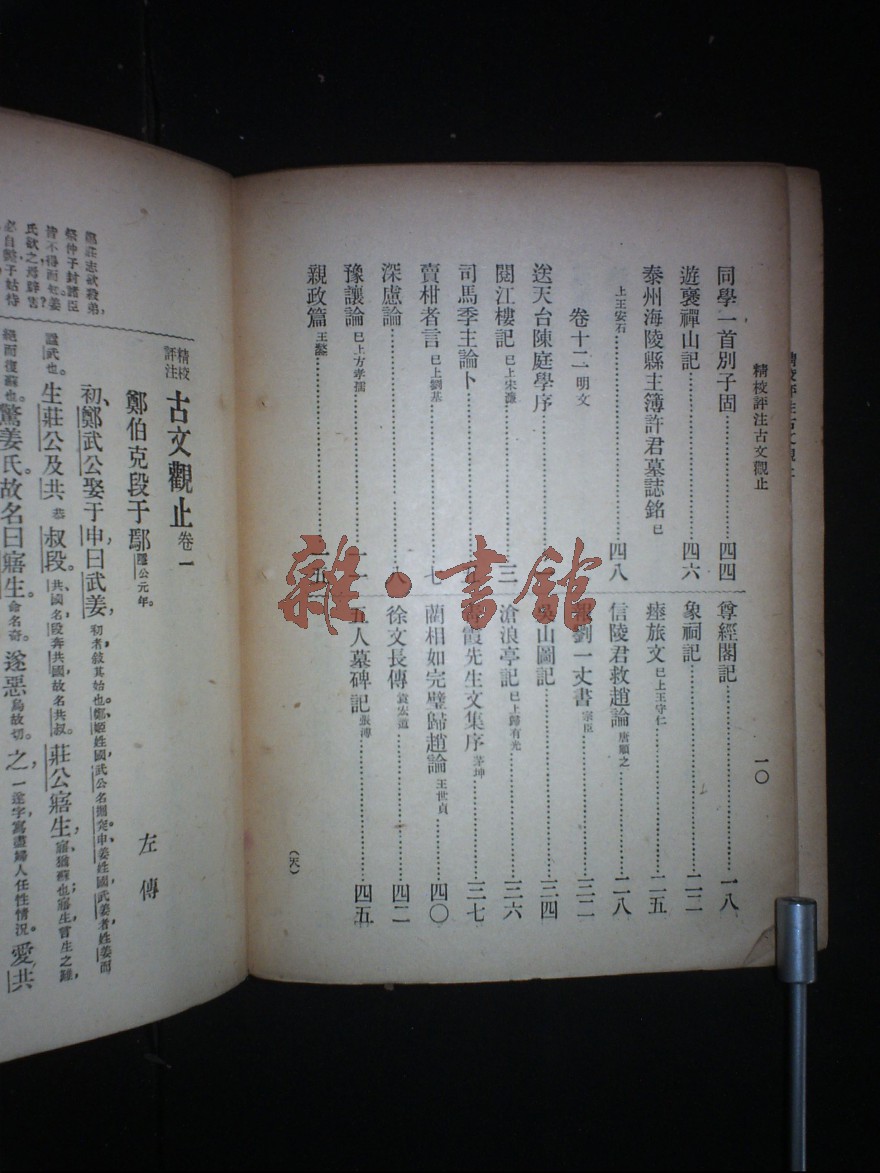 精校評注古文觀止
一〇
同學一首別子固……四四
遊褒禪山記……四六
泰州海陵縣主簿許君墓誌銘 已
上王安石……四八
卷十二 明文
送天台陳庭學序
閱江樓記 已上宋濂……三
司馬季主論卜
賣柑者言 已上劉基……七
深慮論……八
豫讓論 已上方孝孺……一一
親政篇 王鏊……一五
尊經閣記……一八
象祠記……二二
瘞旅文 已上王守仁……二五
信陵君救趙論 唐順之……二八
報劉一丈書 宗臣……三二
吳山圖記……三四
滄浪亭記 已上歸有光……三六
霞先生文集序 茅坤……三七
藺相如完璧歸趙論 王世貞……四〇
徐文長傳 袁宏道……四二
五人墓碑記 張溥……四五
(天)
雜·書館
精校
評注
古文觀止 卷一
鄭伯克段于鄢 隱公元年。
左傳
初,鄭武公娶于申,曰武姜,
生莊公及共 恭 叔段。共,國名,段奔共國,故名共叔。莊公寤生,
驚姜氏,故名曰寤生。命名奇。遂惡 烏故切。之,一遂字寫盡婦人任性情況。愛共
鄭莊志欲殺弟,
祭仲子封諸臣
皆不得而知姜
氏欲之焉辟害
必自斃子姑待